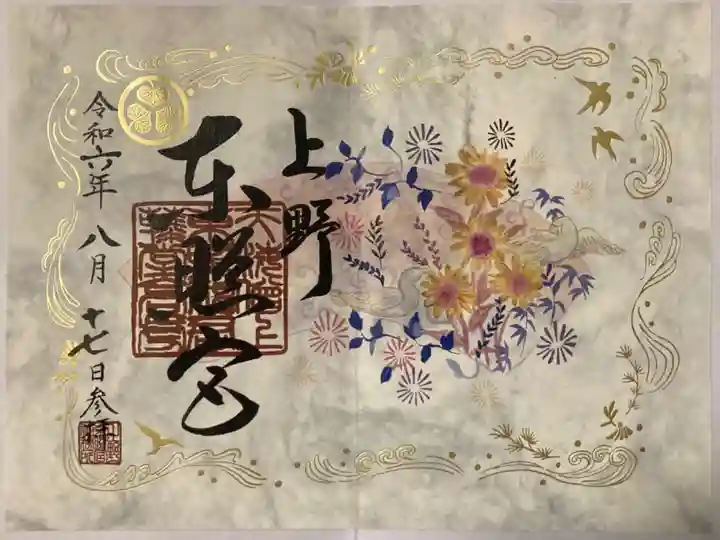 上野
東照宮
令和六年 八月 十七日参拝